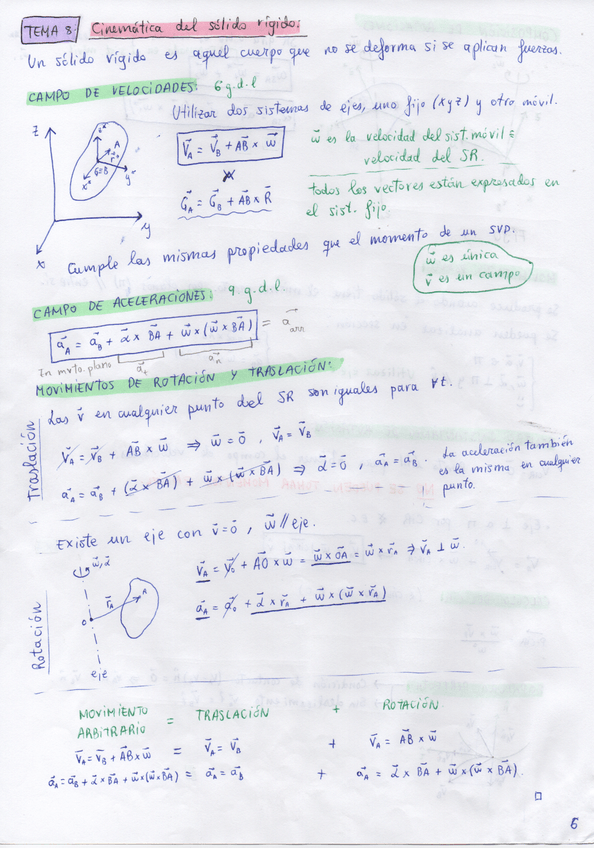 TEMA 8: Cinemática del sólido rígido:
Un sólido rígido es aquel cuerpo que no se deforma si se aplican fuerzas.
CAMPO DE VELOCIDADES: 6 g.d.l
Utilizar dos sistemas de ejes, uno fijo (xyz) y otro móvil.
z
A
G≡B
x''
y''
y
x
v⃗_A = v⃗_B + AB⃗ × w⃗
G⃗_A = G⃗_B + AB⃗ × R⃗
w⃗ es la velocidad del sist. móvil ≡
velocidad del SR.
todos los vectores están expresados en
el sist. fijo
Cumple las mismas propiedades que el momento de un SVD.
w⃗ es única
v⃗ es un campo
CAMPO DE ACELERACIONES: 9 g.d.l.
a⃗_A = a⃗_B + α⃗ × BA⃗ + w⃗ × (w⃗ × BA⃗) = a⃗_arr
In mvto. plano a⃗_t a⃗_n
MOVIMIENTOS DE ROTACIÓN Y TRASLACIÓN:
Las v⃗ en cualquier punto del SR son iguales para ∀t.
Traslación
v⃗_A = v⃗_B + AB⃗ × w⃗ ⇒ w⃗ = 0⃗ , v⃗_A = v⃗_B
a⃗_A = a⃗_B + (α⃗ × BA⃗) + w⃗ × (w⃗ × BA⃗) ⇒ α⃗ = 0⃗ , a⃗_A = a⃗_B.
La aceleración también
es la misma en cualquier
punto.
Existe un eje con v⃗ = 0⃗ , w⃗ // eje.
Rotación
w⃗, α⃗
r⃗_A
A
O
eje
v⃗_A = v⃗_0 + AO⃗ × w⃗ = w⃗ × OA⃗ = w⃗ × r⃗_A ⇒ v⃗_A ⊥ w⃗.
a⃗_A = a⃗_0 + α⃗ × r⃗_A + w⃗ × (w⃗ × r⃗_A)
MOVIMIENTO ARBITRARIO = TRASLACIÓN + ROTACIÓN
v⃗_A = v⃗_B + AB⃗ × w⃗ = v⃗_A = v⃗_B + v⃗_A = AB⃗ × w⃗
a⃗_A = a⃗_B + α⃗ × BA⃗ + w⃗ × (w⃗ × BA⃗) = a⃗_A = a⃗_B + a⃗_A = α⃗ × BA⃗ + w⃗ × (w⃗ × BA⃗).
6